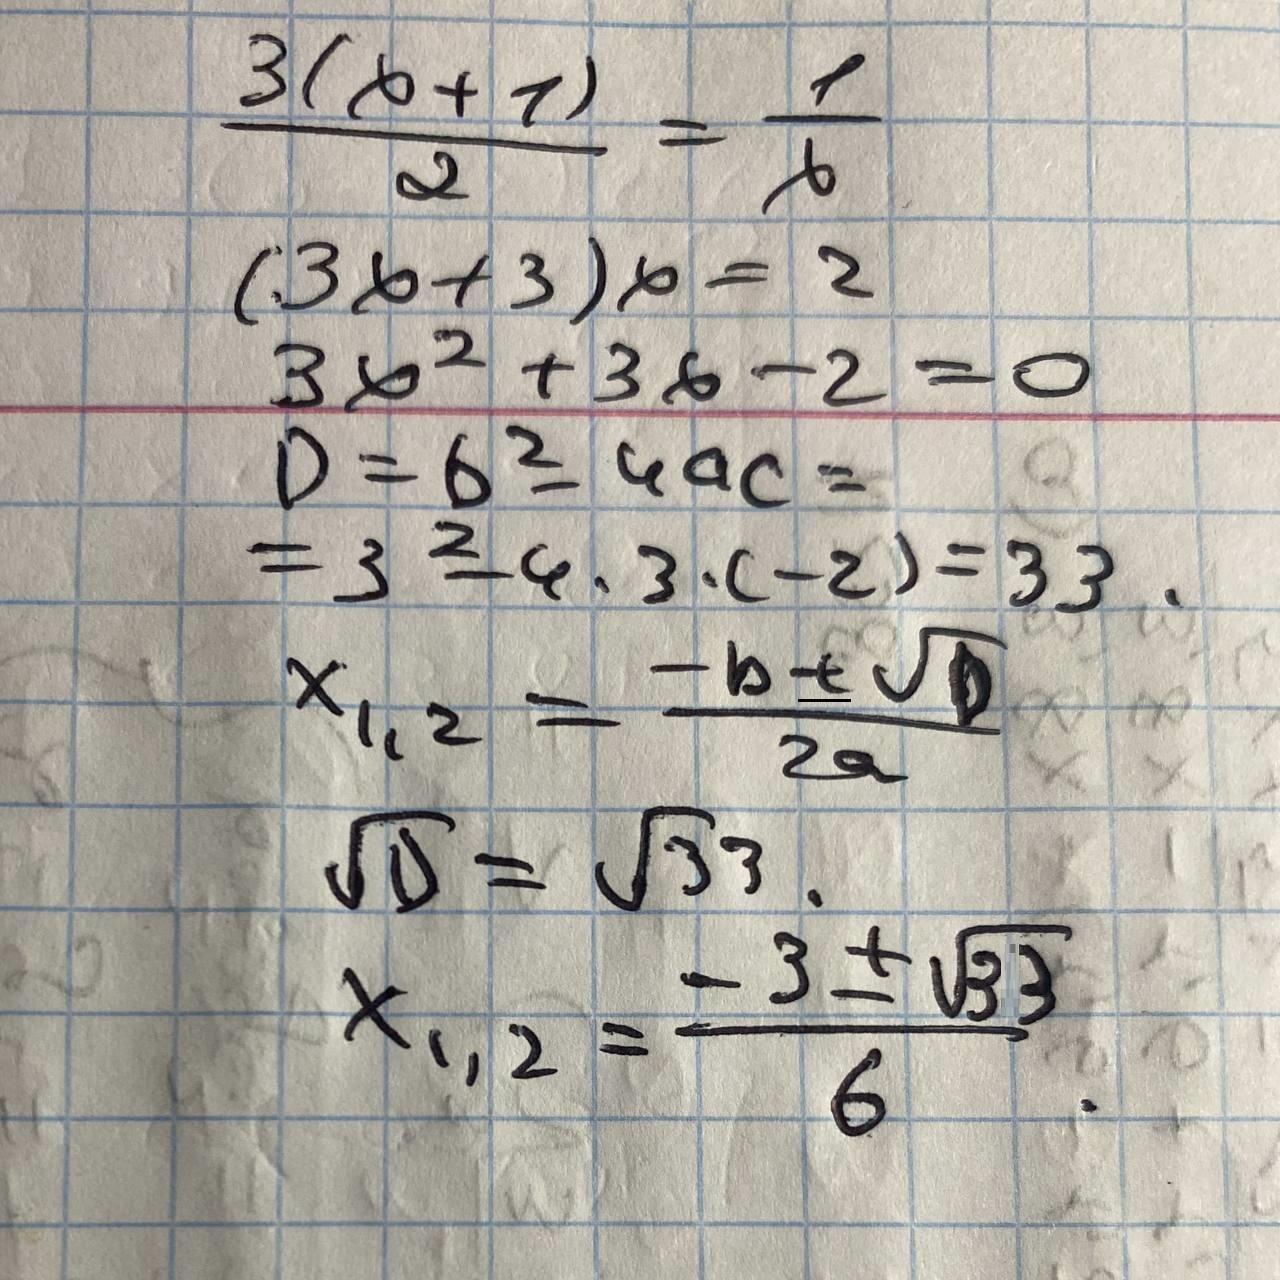 3(x+1)/2 = 1/x
(3x+3)x = 2
3x² + 3x - 2 = 0
D = b² - 4ac =
= 3² - 4 · 3 · (-2) = 33 .
x₁,₂ = (-b ± √D)/2a
√D = √33 .
x₁,₂ = (-3 ± √33)/6 .